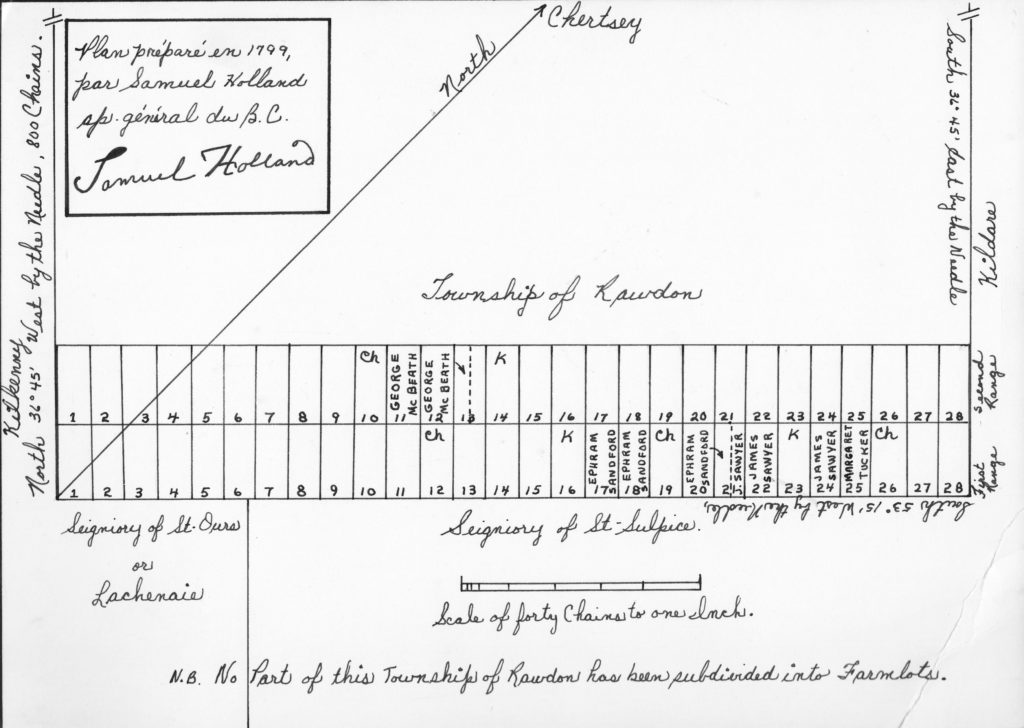 Plan préparé en 1799,
par Samuel Holland
sp. général du B.C.
Samuel Holland
North
Chertsey
Kilkenny
North 36° 45' West by the Needle, 800 Chains.
South 36° 45' East by the Needle
Kildare
Township of Rawdon
Ch GEORGE McBEATH GEORGE McBEATH K
1 2 3 4 5 6 7 8 9 10 11 12 13 14 15 16 17 18 19 20 21 22 23 24 25 26 27 28
Second Range
Ch K EPHRAM SANDFORD EPHRAM SANDFORD Ch EPHRAM SANDFORD J. SAWYER JAMES SAWYER K JAMES SAWYER MARGARET TUCKER Ch
1 2 3 4 5 6 7 8 9 10 11 12 13 14 15 16 17 18 19 20 21 22 23 24 25 26 27 28
First Range
South 53° 15' West by the Needle,
Seigniory of St-Ours
or
Lachenaie
Seigniory of St-Sulpice.
Scale of forty Chains to one Inch.
N.B. No Part of this Township of Rawdon has been subdivided into Farmlots.